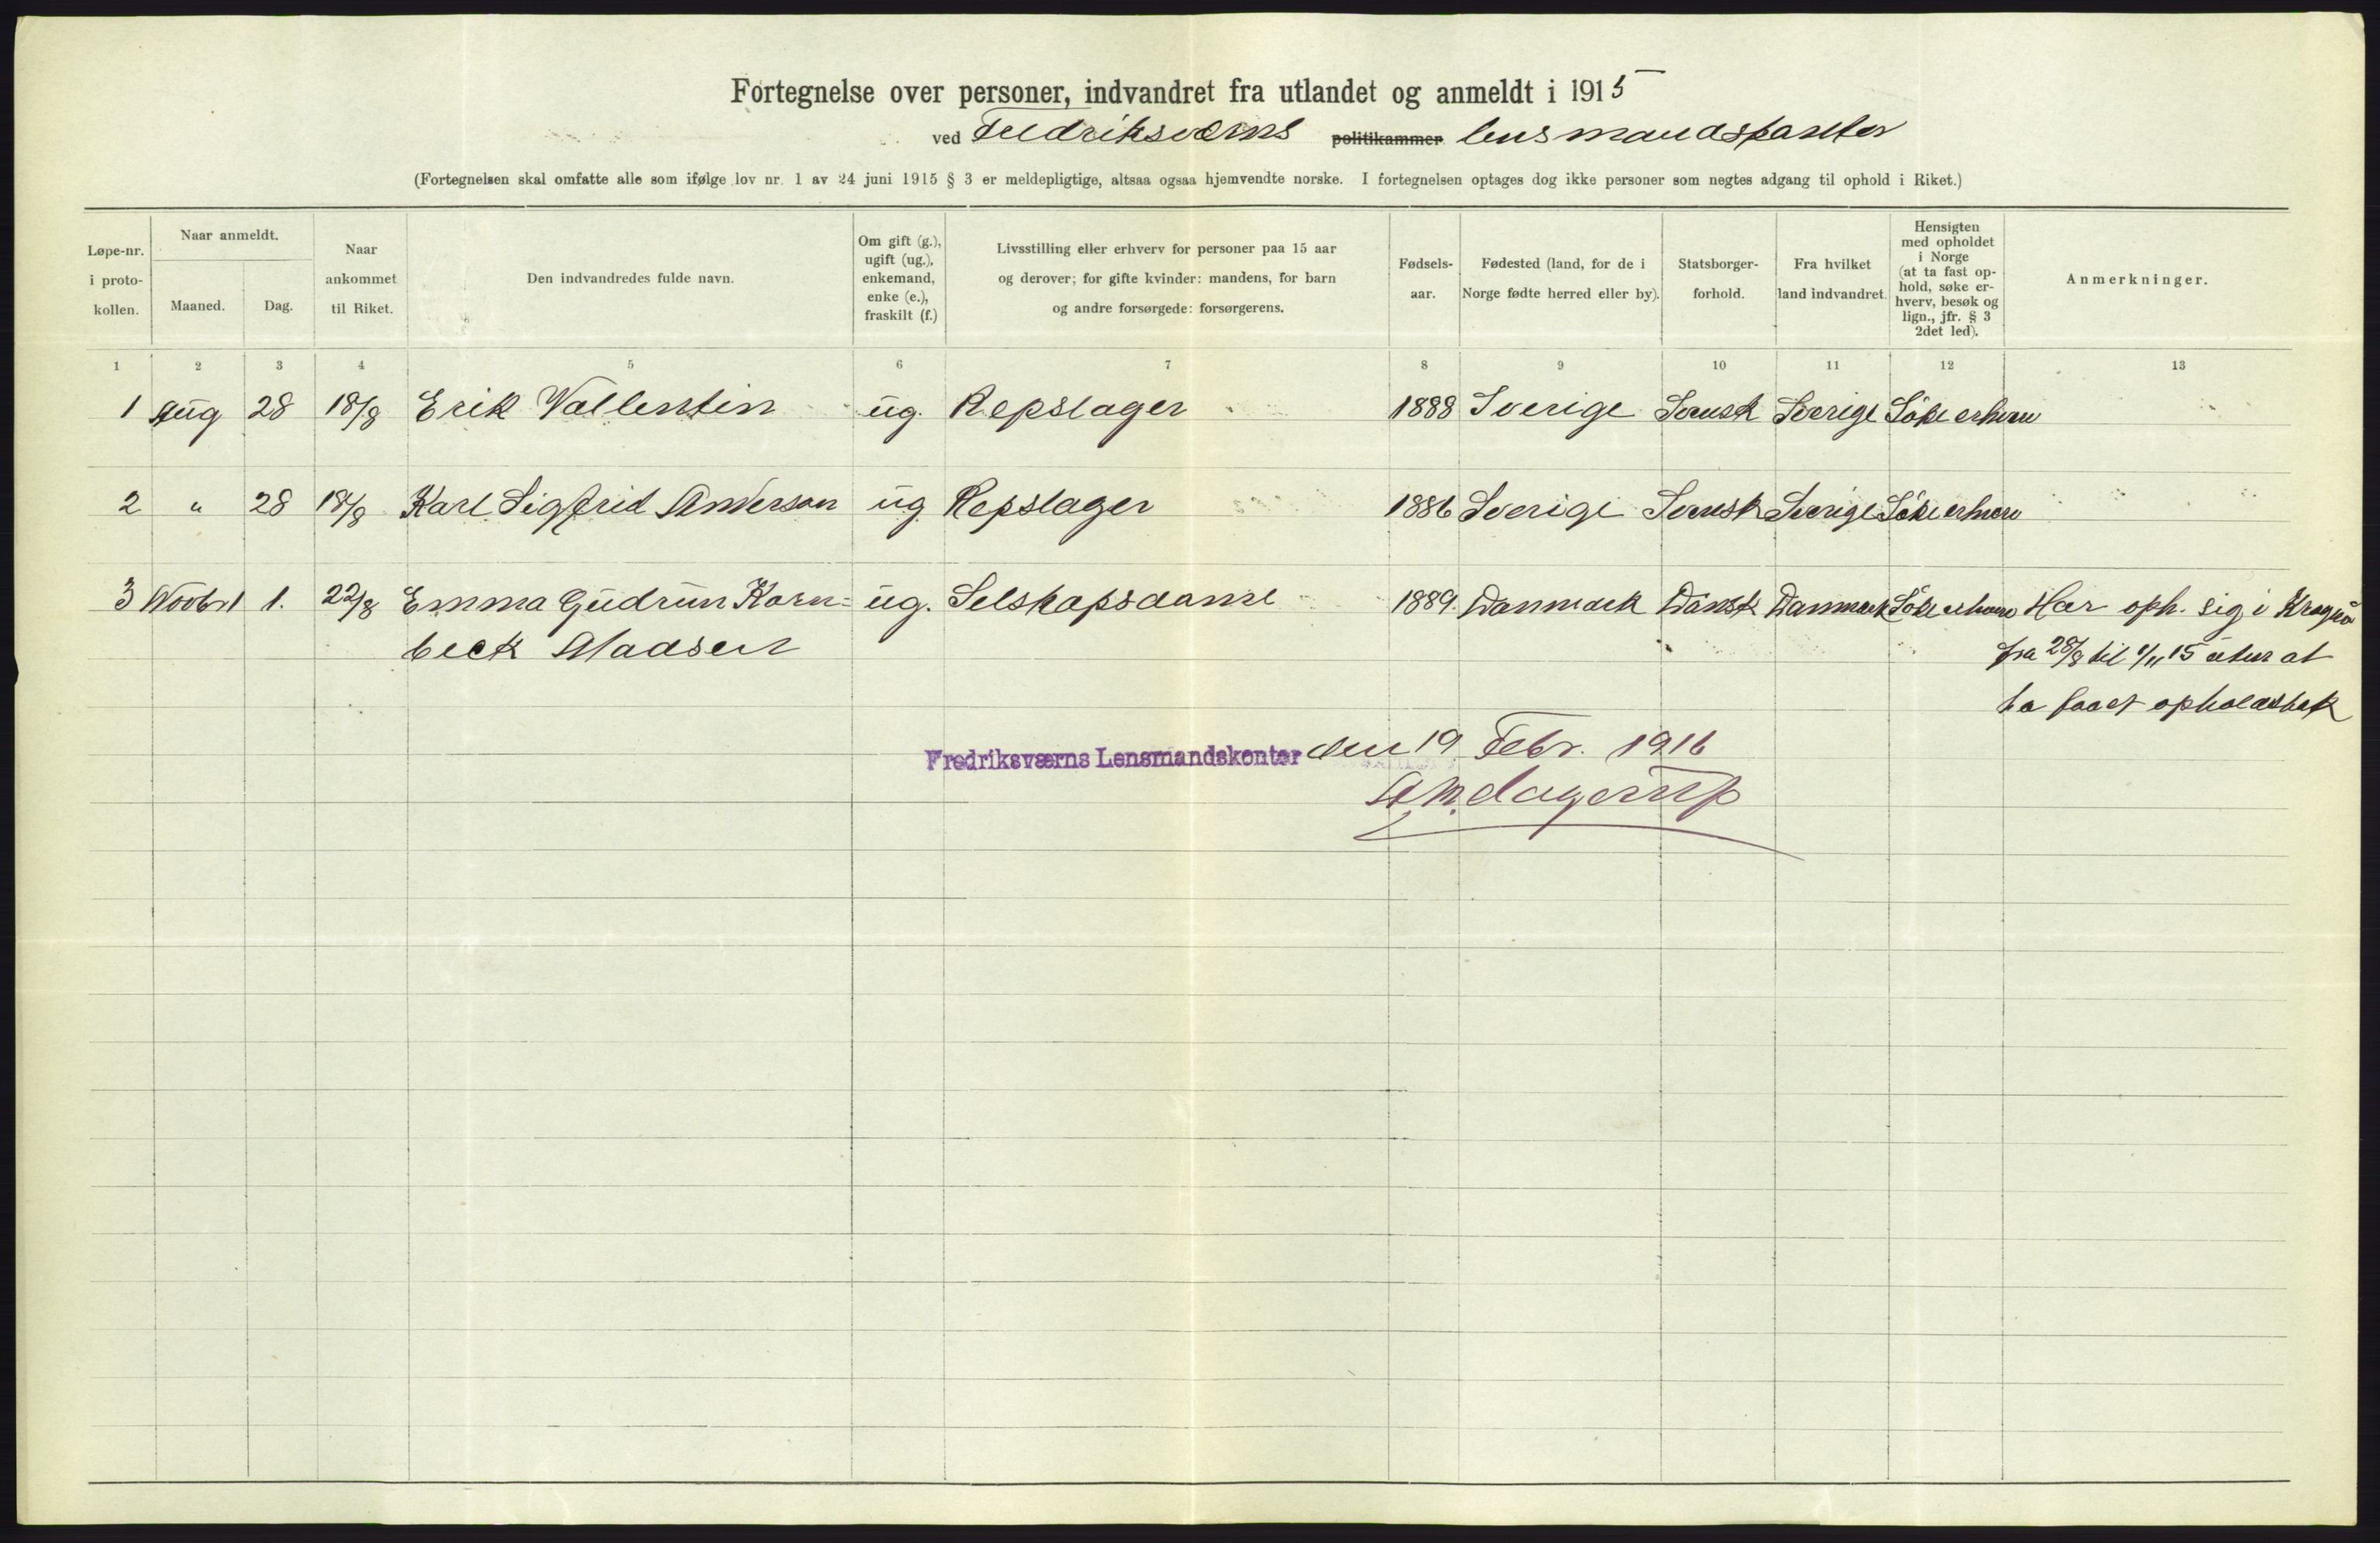 Fortegnelse over personer, indvandret fra utlandet og anmeldt i 1915
ved Fredriksværns politikammer lensmandskontor
(Fortegnelsen skal omfatte alle som ifølge lov nr. 1 av 24 juni 1915 § 3 er meldepligtige, altsaa ogsaa hjemvendte norske. I fortegnelsen optages dog ikke personer som negtes adgang til ophold i Riket.)
Løpe-nr. i proto- kollen.
Naar anmeldt.
Maaned. Dag.
Naar ankommet til Riket.
Den indvandredes fulde navn.
Om gift (g.), ugift (ug.), enkemand, enke (e.), fraskilt (f.)
Livsstilling eller erhverv for personer paa 15 aar og derover; for gifte kvinder: mandens, for barn og andre forsørgede: forsørgerens.
Fødsels- aar.
Fødested (land, for de i Norge fødte herred eller by).
Statsborger- forhold.
Fra hvilket land indvandret.
Hensigten med opholdet i Norge (at ta fast op- hold, søke er- hverv, besøk og lign., jfr. § 3 2det led).
Anmerkninger.
1 2 3 4 5 6 7 8 9 10 11 12 13
1 Aug 28 18/8 Erik Vallentin ug. Repslager 1888 Sverige Svensk Sverige Söke erhverv
2 " 28 18/8 Karl Sigfrid Anderson ug Repslager 1886 Sverige Svensk Sverige Söke erhverv
3 Novbr 1. 22/8 Emma Gudrun Korn= ug. Selskapsdame 1889 Danmark Dansk Danmark Söke erhverv Har oph. sig i Kragerö
beck Madsen fra 28/8 til 1/11 15 uten at
ha faaet opholdsbok
Fredriksværns Lensmandskontor den 19 Febr. 1916